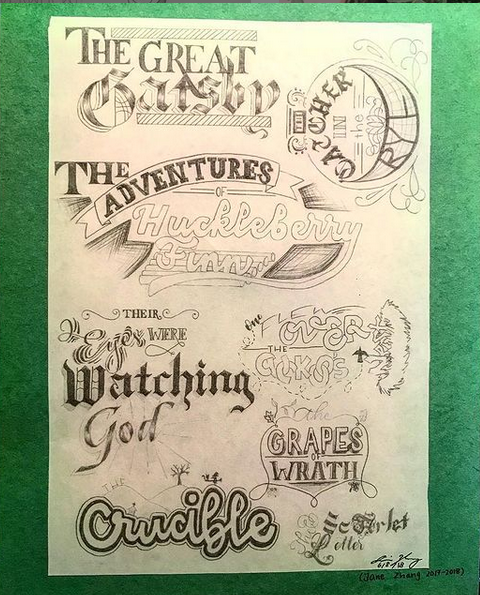 THE GREAT
Gatsby
THE
CATCHER
IN
the
RYE
THE
ADVENTURES
OF
Huckleberry
Finn
THEIR
Eyes WERE
Watching
God
One
OVER
THE
the
GRAPES
OF
WRATH
THE
Crucible
Scarlet
Letter
6/8/18
(Jane Zhang 2017-2018)